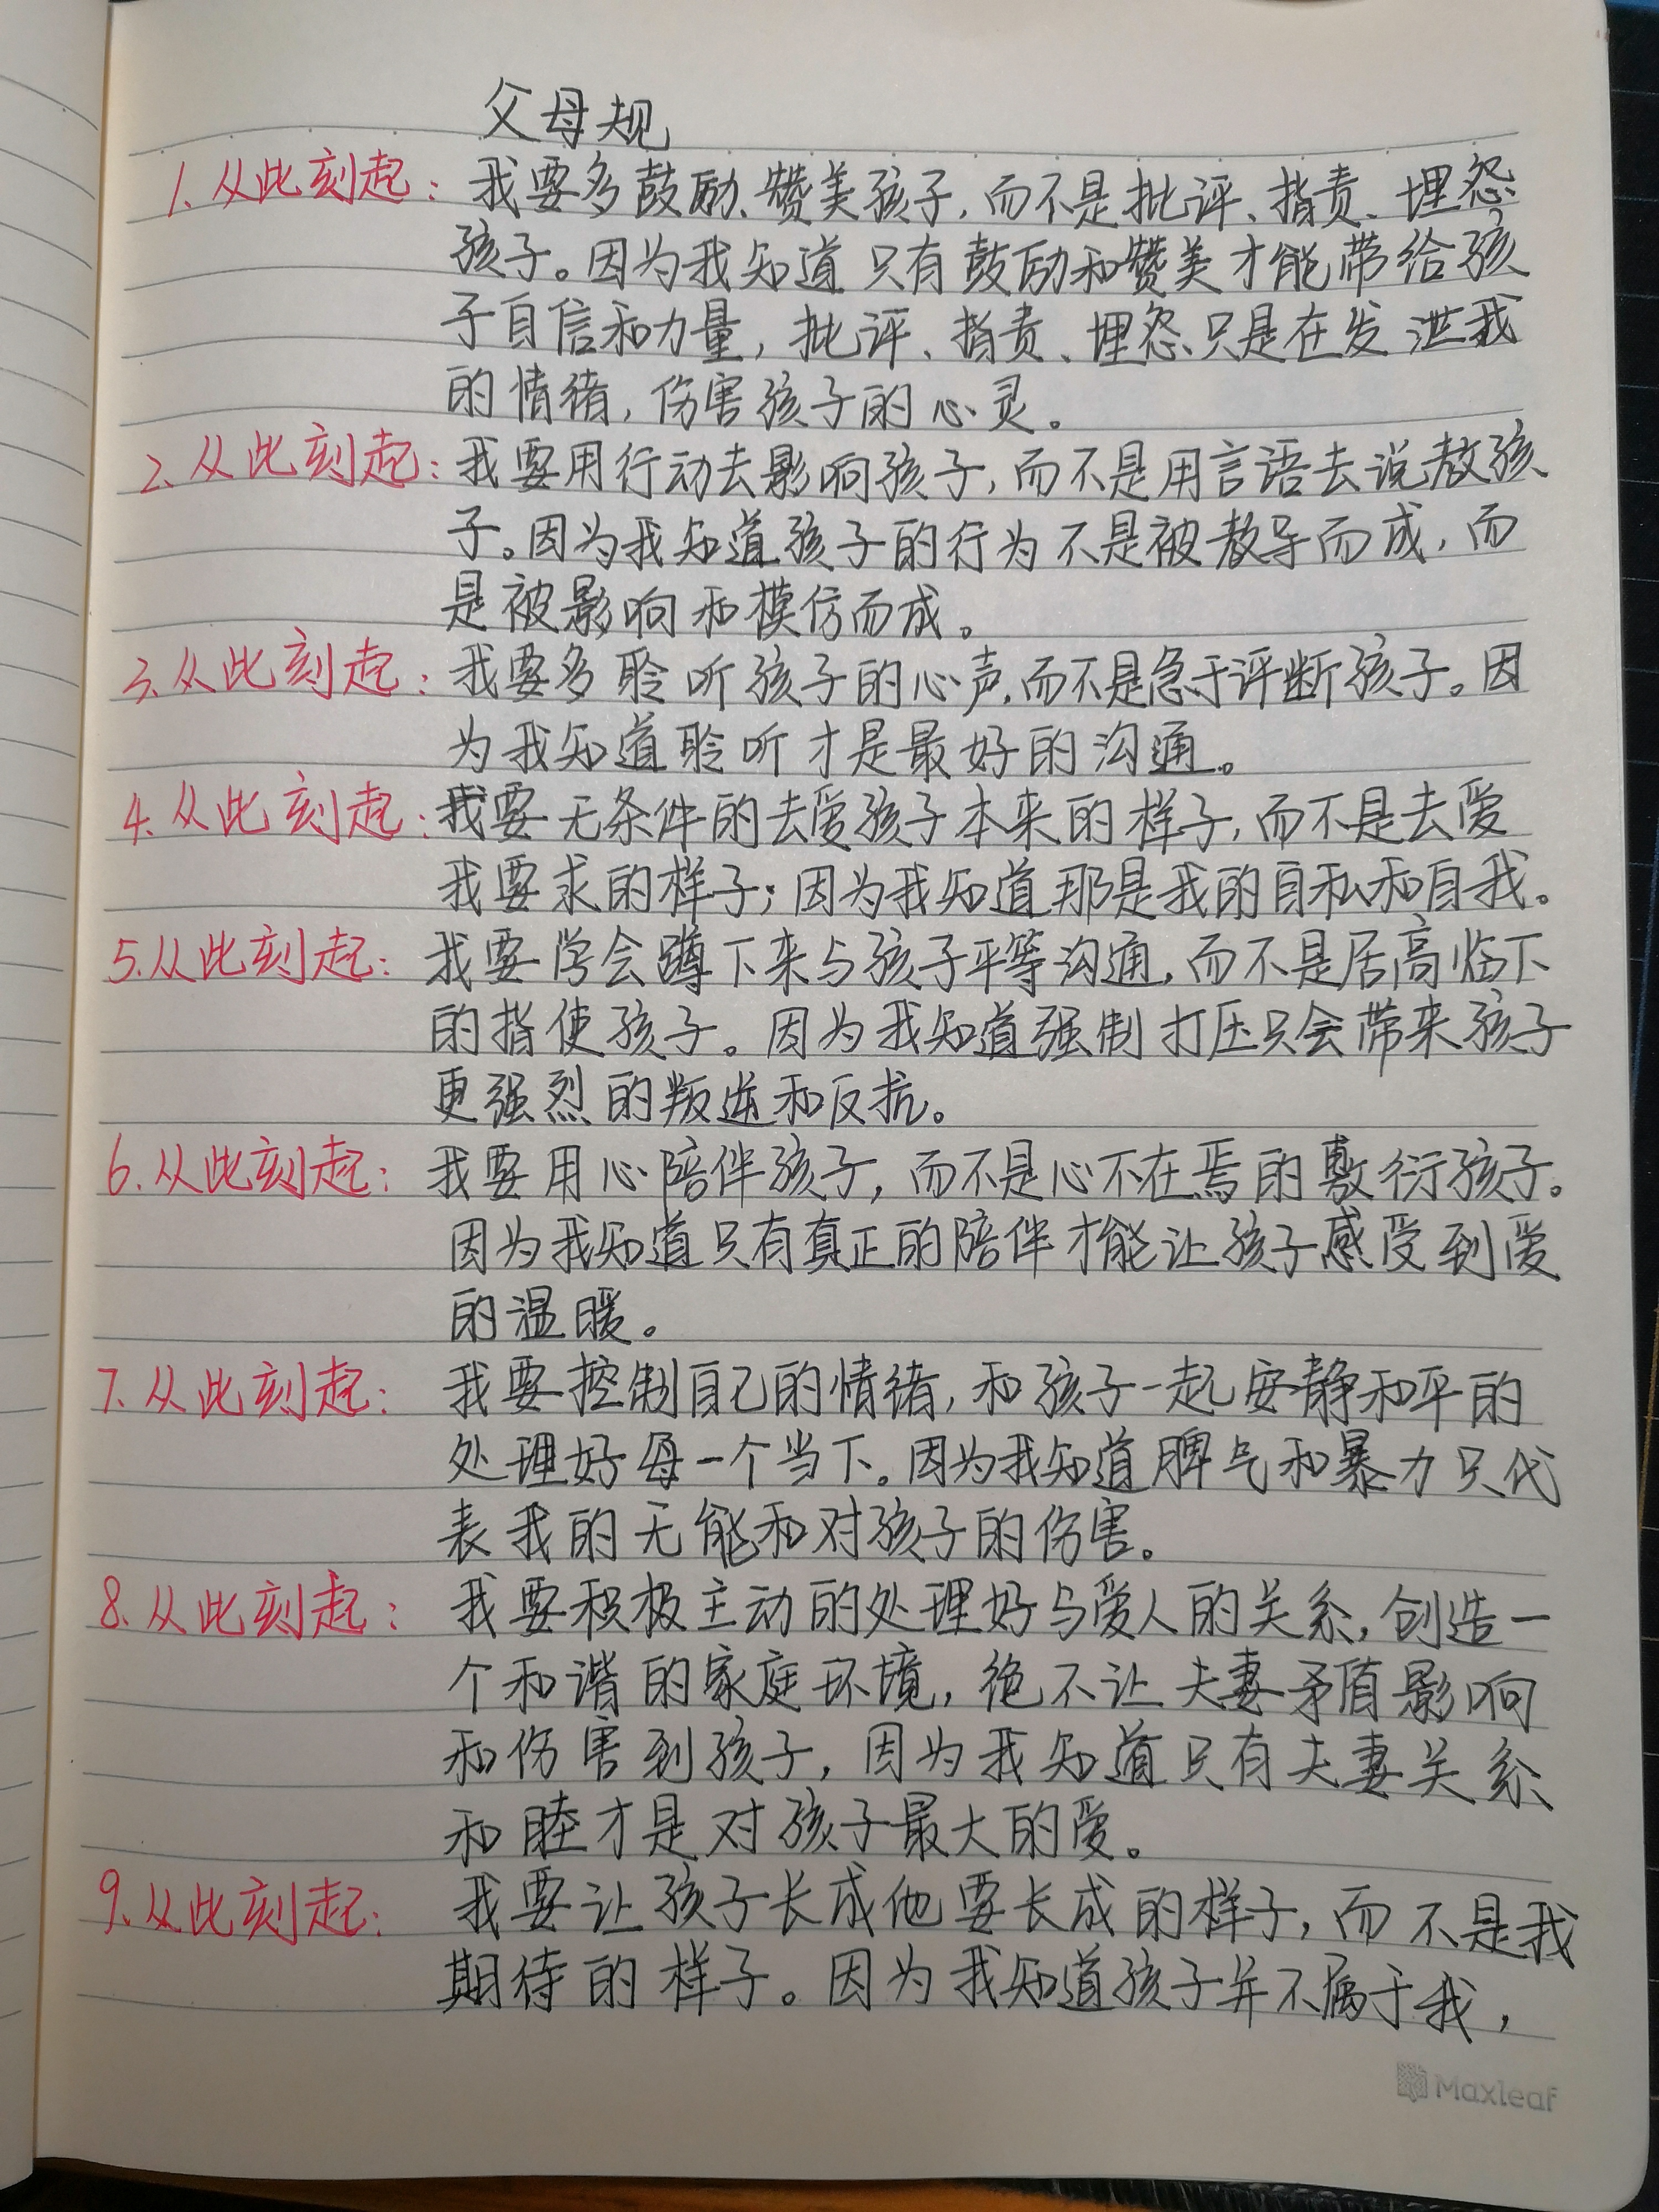 父母规
1.从此刻起：我要多鼓励、赞美孩子，而不是批评、指责、埋怨
孩子。因为我知道只有鼓励和赞美才能带给孩
子自信和力量，批评、指责、埋怨、只是在发泄我
的情绪，伤害孩子的心灵。
2.从此刻起：我要用行动去影响孩子，而不是用言语去说教孩
子。因为我知道孩子的行为不是被教导而成，而
是被影响和模仿而成。
3.从此刻起：我要多聆听孩子的心声，而不是急于评断孩子。因
为我知道聆听才是最好的沟通。
4.从此刻起：我要无条件的去爱孩子本来的样子，而不是去爱
我要求的样子；因为我知道那是我的自私和自我。
5.从此刻起：我要学会蹲下来与孩子平等沟通，而不是居高临下
的指使孩子。因为我知道强制打压只会带来孩子
更强烈的叛逆和反抗。
6.从此刻起：我要用心陪伴孩子，而不是心不在焉的敷衍孩子。
因为我知道只有真正的陪伴才能让孩子感受到爱
的温暖。
7.从此刻起：我要控制自己的情绪，和孩子一起安静和平的
处理好每一个当下。因为我知道脾气和暴力只代
表我的无能和对孩子的伤害。
8.从此刻起：我要积极主动的处理好与爱人的关系，创造一
个和谐的家庭环境，绝不让夫妻矛盾影响
和伤害到孩子，因为我知道只有夫妻关系
和睦才是对孩子最大的爱。
9.从此刻起：我要让孩子长成他要长成的样子，而不是我
期待的样子。因为我知道孩子并不属于我，
Maxleaf